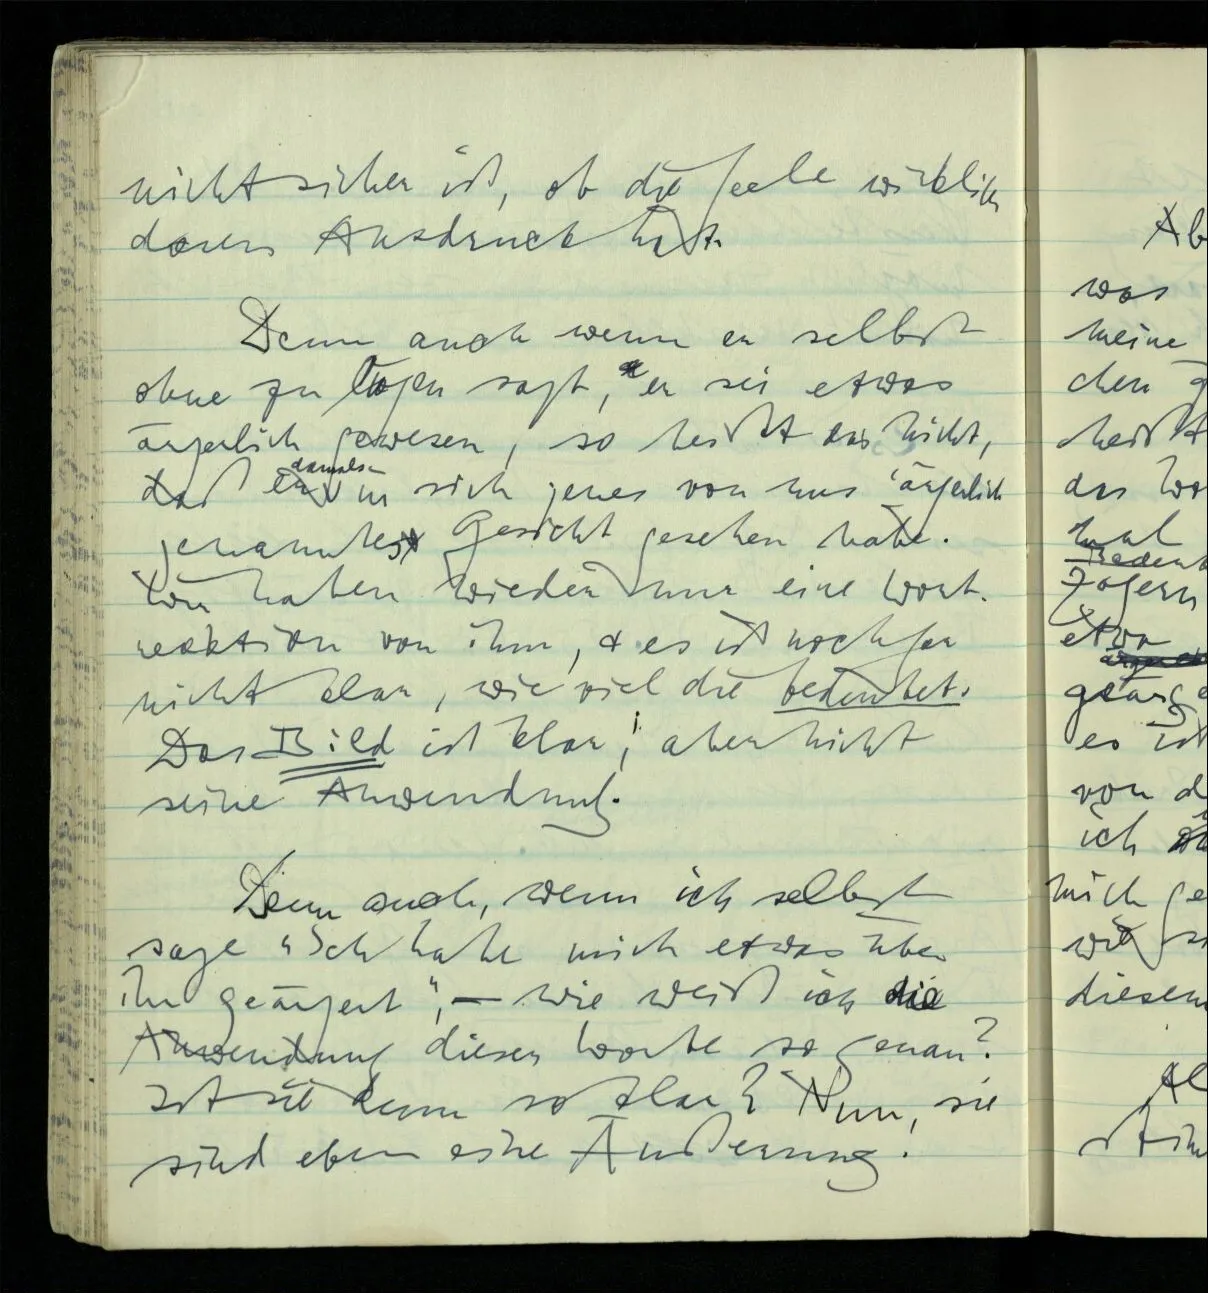 nicht sicher ist, ob die Seele wirklich
davon Ausdruck ist.
Denn auch wenn er selbst
ohne zu lügen sagt, er sei etwas
ärgerlich gewesen, so heißt das nicht,
damals
daß er in sich jenes von uns 'ärgerlich
genannte Gesicht gesehen habe.
Wir haben wieder nur eine Wort-
reaktion von ihm, & es ist noch gar
nicht klar, wie viel die bedeutet.
Das Bild ist klar; aber nicht
seine Anwendung.
Denn auch, wenn ich selbst
sage "Ich habe mich etwas über
ihn geärgert", – wie weiß ich die
Anwendung dieser Worte so genau?
Ist sie denn so klar? Nun, sie
sind eben eine Äußerung.
Ab
was
meine
chen g
heißt
das Wo
mal
Bedenk
Zögern
etwa
geärge
es ist
von d
ich
mich ge
wie
diesem
Al
stim